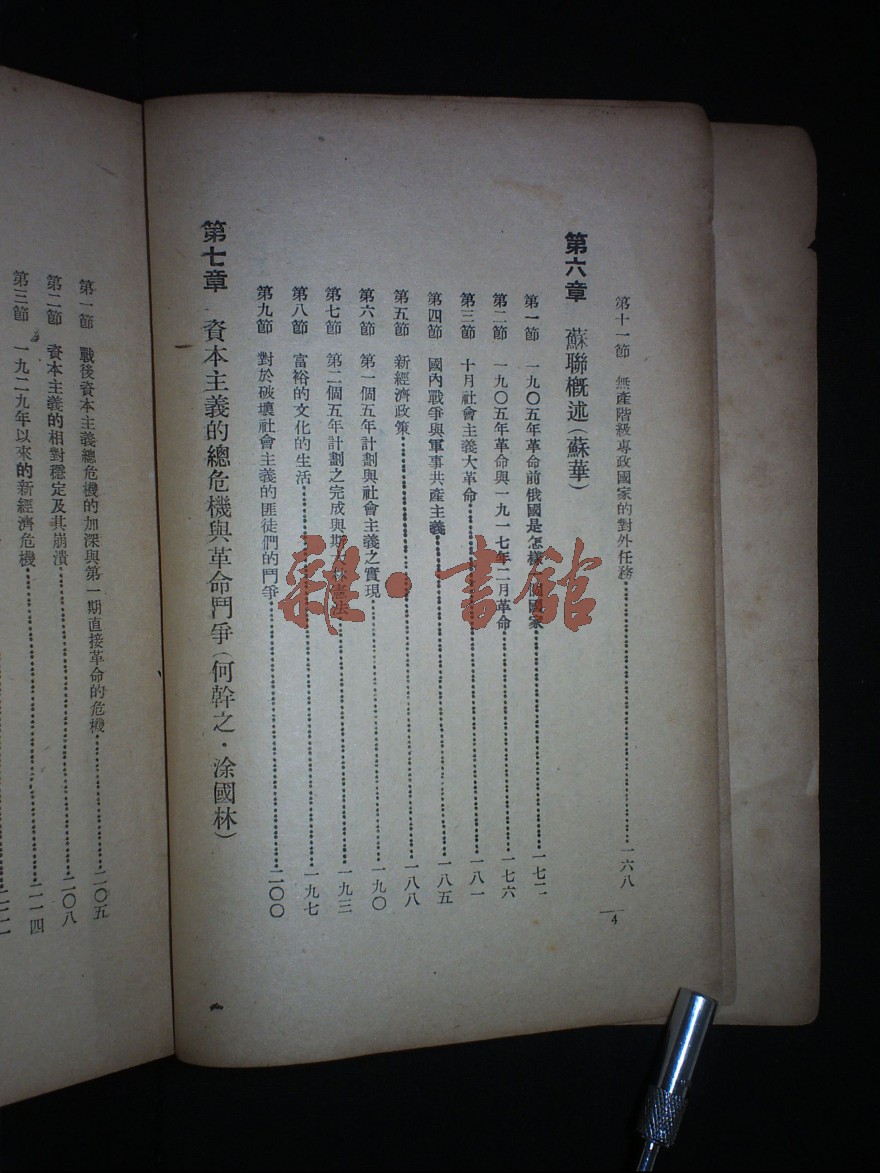 第十一節 無產階級專政國家的對外任務 一六八
第六章 蘇聯概述(蘇華)
第一節 一九〇五年革命前俄國是怎樣一個國家 一七二
第二節 一九〇五年革命與一九一七年二月革命 一七六
第三節 十月社會主義大革命 一八一
第四節 國內戰爭與軍事共產主義 一八五
第五節 新經濟政策 一八八
第六節 第一個五年計劃與社會主義之實現 一九〇
第七節 第二個五年計劃之完成與斯大林憲法 一九三
第八節 富裕的文化的生活 一九七
第九節 對於破壞社會主義的匪徒們的鬥爭 二〇〇
第七章 資本主義的總危機與革命鬥爭(何幹之・涂國林)
4
第一節 戰後資本主義總危機的加深與第一期直接革命的危機 二〇五
第二節 資本主義的相對穩定及其崩潰 二〇八
第三節 一九二九年以來的新經濟危機 二一四
雜・書館